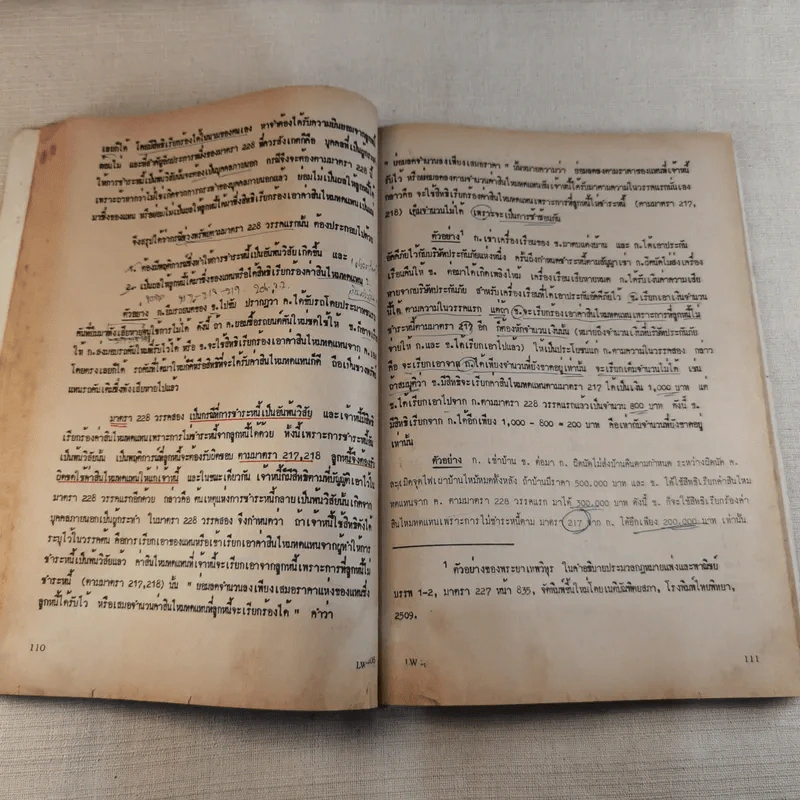 เลยก็ได้ โดยมีสิทธิเรียกร้องได้ในนามของตนเอง หาจำต้องได้รับความยินยอมจากลูกหนี้
ด้วยไม่ และที่สำคัญอีกประการหนึ่งของมาตรา 228 ที่ควรสังเกตก็คือ บุคคลที่เป็นลูกหนี้
ให้การชำระหนี้เป็นพ้นวิสัยนั้นจะต้องเป็นบุคคลภายนอก กรณีจึงจะต้องตามมาตรา 228 นี้
เพราะถ้าหากว่าไม่ใช่เกิดจากการกระทำของบุคคลภายนอกแล้ว ย่อมไม่เป็นผลให้ลูกหนี้ได้
มาซึ่งของแทน หรือย่อมไม่เป็นผลให้ลูกหนี้ได้มาซึ่งสิทธิเรียกร้องเอาค่าสินไหมทดแทนได้
จึงสรุปได้ว่ากรณีที่จะตามมาตรา 228 วรรคแรกนั้น ต้องประกอบไปด้วย
1. ต้องมีพฤติการณ์ซึ่งทำให้การชำระหนี้เป็นอันพ้นวิสัยเกิดขึ้น และ
2. เป็นผลให้ลูกหนี้ได้มาซึ่งของแทนหรือได้สิทธิเรียกร้องค่าสินไหมทดแทน
ตัวอย่าง ก.ยืมรถยนต์ของ ข.ไปขับ ปรากฏว่า ค.ได้ขับรถโดยประมาท
คันที่ยืมมาพังเสียหายจนใช้การไม่ได้ ดังนี้ ถ้า ค.ยอมซื้อรถยนต์คันใหม่ชดใช้ให้ ข.ก็อาจ
ให้ ก.ส่งมอบรถคันใหม่ที่รับไว้ได้ หรือ ข.จะใช้สิทธิเรียกร้องเอาค่าสินไหมทดแทนจาก ค.
โดยตรงเลยก็ได้ รถคันที่ได้มาใหม่ก็ดีหรือสิทธิที่จะได้รับค่าสินไหมทดแทนก็ดี ถือเป็นช่วงทรัพย์
แทนรถคันเดิมซึ่งพังเสียหายไปแล้ว
มาตรา 228 วรรคสอง เป็นกรณีที่การชำระหนี้เป็นอันพ้นวิสัย และเจ้าหนี้มีสิทธิ
เรียกร้องค่าสินไหมทดแทนเพราะการไม่ชำระหนี้จากลูกหนี้ได้ด้วย ทั้งนี้เพราะการชำระหนี้
เป็นพ้นวิสัยนั้น เป็นพฤติการณ์ที่ลูกหนี้จะต้องรับผิดชอบ ตามมาตรา 217,218 ลูกหนี้จึงต้องรับ
ผิดชดใช้ค่าสินไหมทดแทนให้แก่เจ้าหนี้ และในขณะเดียวกัน เจ้าหนี้ก็มีสิทธิตามที่บัญญัติเอาไว้ใน
มาตรา 228 วรรคแรกอีกด้วย กล่าวคือ ต้นเหตุแห่งการชำระหนี้กลายเป็นพ้นวิสัยนั้นเกิดจาก
บุคคลภายนอกเป็นผู้กระทำ ในมาตรา 228 วรรคสอง จึงกำหนดว่า ถ้าเจ้าหนี้ใช้สิทธิดังได้
ระบุไว้ในวรรคต้น คือการเรียกเอาของแทนหรือเข้าเรียกเอาค่าสินไหมทดแทนจากผู้ทำให้การ
ชำระหนี้เป็นพ้นวิสัยแล้ว ค่าสินไหมทดแทนที่เจ้าหนี้จะเรียกเอาจากลูกหนี้เพราะการที่ลูกหนี้ไม่
ชำระหนี้ (ตามมาตรา 217,218) นั้น " ย่อมลดจำนวนลงเพียงเสมอราคาแห่งของแทนซึ่ง
ลูกหนี้ได้รับไว้ หรือเสมอจำนวนค่าสินไหมทดแทนที่ลูกหนี้จะเรียกร้องได้ " คำว่า
110
" ย่อมลดจำนวนลงเพียงเสมอราคา " นั้นหมายความว่า ย่อมลดลงตามราคาของแทนที่เจ้าหนี้
ได้ไว้ หรือย่อมลดลงตามจำนวนค่าสินไหมทดแทนที่เจ้าหนี้ได้รับมาตามความในวรรคแรกนั่นเอง
กล่าวคือ จะใช้สิทธิเรียกร้องค่าสินไหมทดแทนเพราะการที่ลูกหนี้ไม่ชำระหนี้ (ตามมาตรา 217,
218) เต็มจำนวนไม่ได้ เพราะจะเป็นการซ้ำซ้อนกัน
ตัวอย่าง¹ ก.เช่าเครื่องเรือนของ ข.มาตบแต่งบ้าน และ ก.ได้เอาประกัน
อัคคีภัยไว้กับบริษัทประกันภัยแห่งหนึ่ง ครั้นถึงกำหนดชำระหนี้ตามสัญญาเช่า ก.ผิดนัดไม่ส่งเครื่อง
เรือนคืนให้ ข. ต่อมาได้เกิดเพลิงไหม้ เครื่องเรือนเสียหายหมด ก.ได้รับเงินค่าความเสีย
หายจากบริษัทประกันภัย สำหรับเครื่องเรือนที่ได้เอาประกันอัคคีภัยไว้ ข.เรียกเอาเงินจำนวน
นี้ได้ ตามความในวรรคแรก แต่ถ้า ข.จะเรียกร้องเอาค่าสินไหมทดแทนเพราะการที่ลูกหนี้ไม่
ชำระหนี้ตามมาตรา 217 อีก ก็ต้องหักจำนวนเงินนั้น (หมายถึงจำนวนเงินที่บริษัทประกันภัย
จ่ายให้ ก.และ ข.ได้เรียกเอาไปแล้ว) ให้เป็นประโยชน์แก่ ก.ตามความในวรรคสอง กล่าว
คือ จะเรียกเอาจาก ก.ได้เพียงจำนวนที่ยังขาดอยู่เท่านั้น จะเรียกเต็มจำนวนไม่ได้ เช่น
ถ้าสมมุติว่า ข.มีสิทธิจะเรียกค่าสินไหมทดแทนตามมาตรา 217 ได้เป็นเงิน 1,000 บาท แต่
ข.ได้เรียกเอาไปจาก ก.ตามมาตรา 228 วรรคแรกแล้วเป็นจำนวน 800 บาท ดังนี้ ข.
มีสิทธิเรียกจาก ก.ได้อีกเพียง 1,000 - 800 = 200 บาท คือเท่ากับจำนวนที่ยังขาดอยู่
เท่านั้น
ตัวอย่าง ก. เช่าบ้าน ข. ต่อมา ก. ผิดนัดไม่ส่งบ้านคืนตามกำหนด ระหว่างผิดนัด ค.
ละเมิดจุดไฟเผาบ้านไหม้หมดทั้งหลัง ถ้าบ้านมีราคา 500.000 บาท และ ข. ได้ใช้สิทธิเรียกค่าสินไหม
ทดแทนจาก ค. ตามมาตรา 228 วรรคแรก มาได้ 300.000 บาท ดังนี้ ข. ก็จะใช้สิทธิเรียกร้องค่า
สินไหมทดแทนเพราะการไม่ชำระหนี้ตาม มาตรา 217 จาก ก. ได้อีกเพียง 200.000 บาท เท่านั้น
¹ ตัวอย่างของพระยาเทพวิทุร ในคำอธิบายประมวลกฎหมายแพ่งและพาณิชย์
บรรพ 1-2, มาตรา 227 หน้า 835, จัดพิมพ์ขึ้นใหม่โดยเนติบัณฑิตยสภา, โรงพิมพ์ไทยพิทยา,
2509.
LW
111